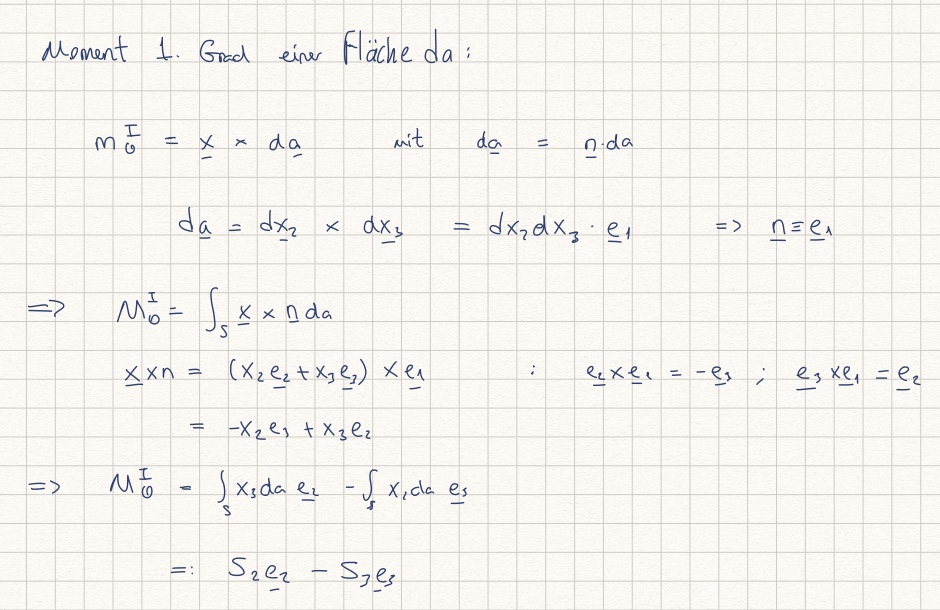 Moment 1. Grad einer Fläche da:
m_O^I = x × da mit da = n·da
da = dx₂ × dx₃ = dx₂dx₃ · e₁ => n ≡ e₁
=> M_O^I = ∫_S x × n da
x × n = (x₂e₂ + x₃e₃) × e₁ : e₂ × e₁ = -e₃ ; e₃ × e₁ = e₂
= -x₂e₃ + x₃e₂
=> M_O^I = ∫_S x₃da e₂ - ∫_S x₂da e₃
=: S₂e₂ - S₃e₃